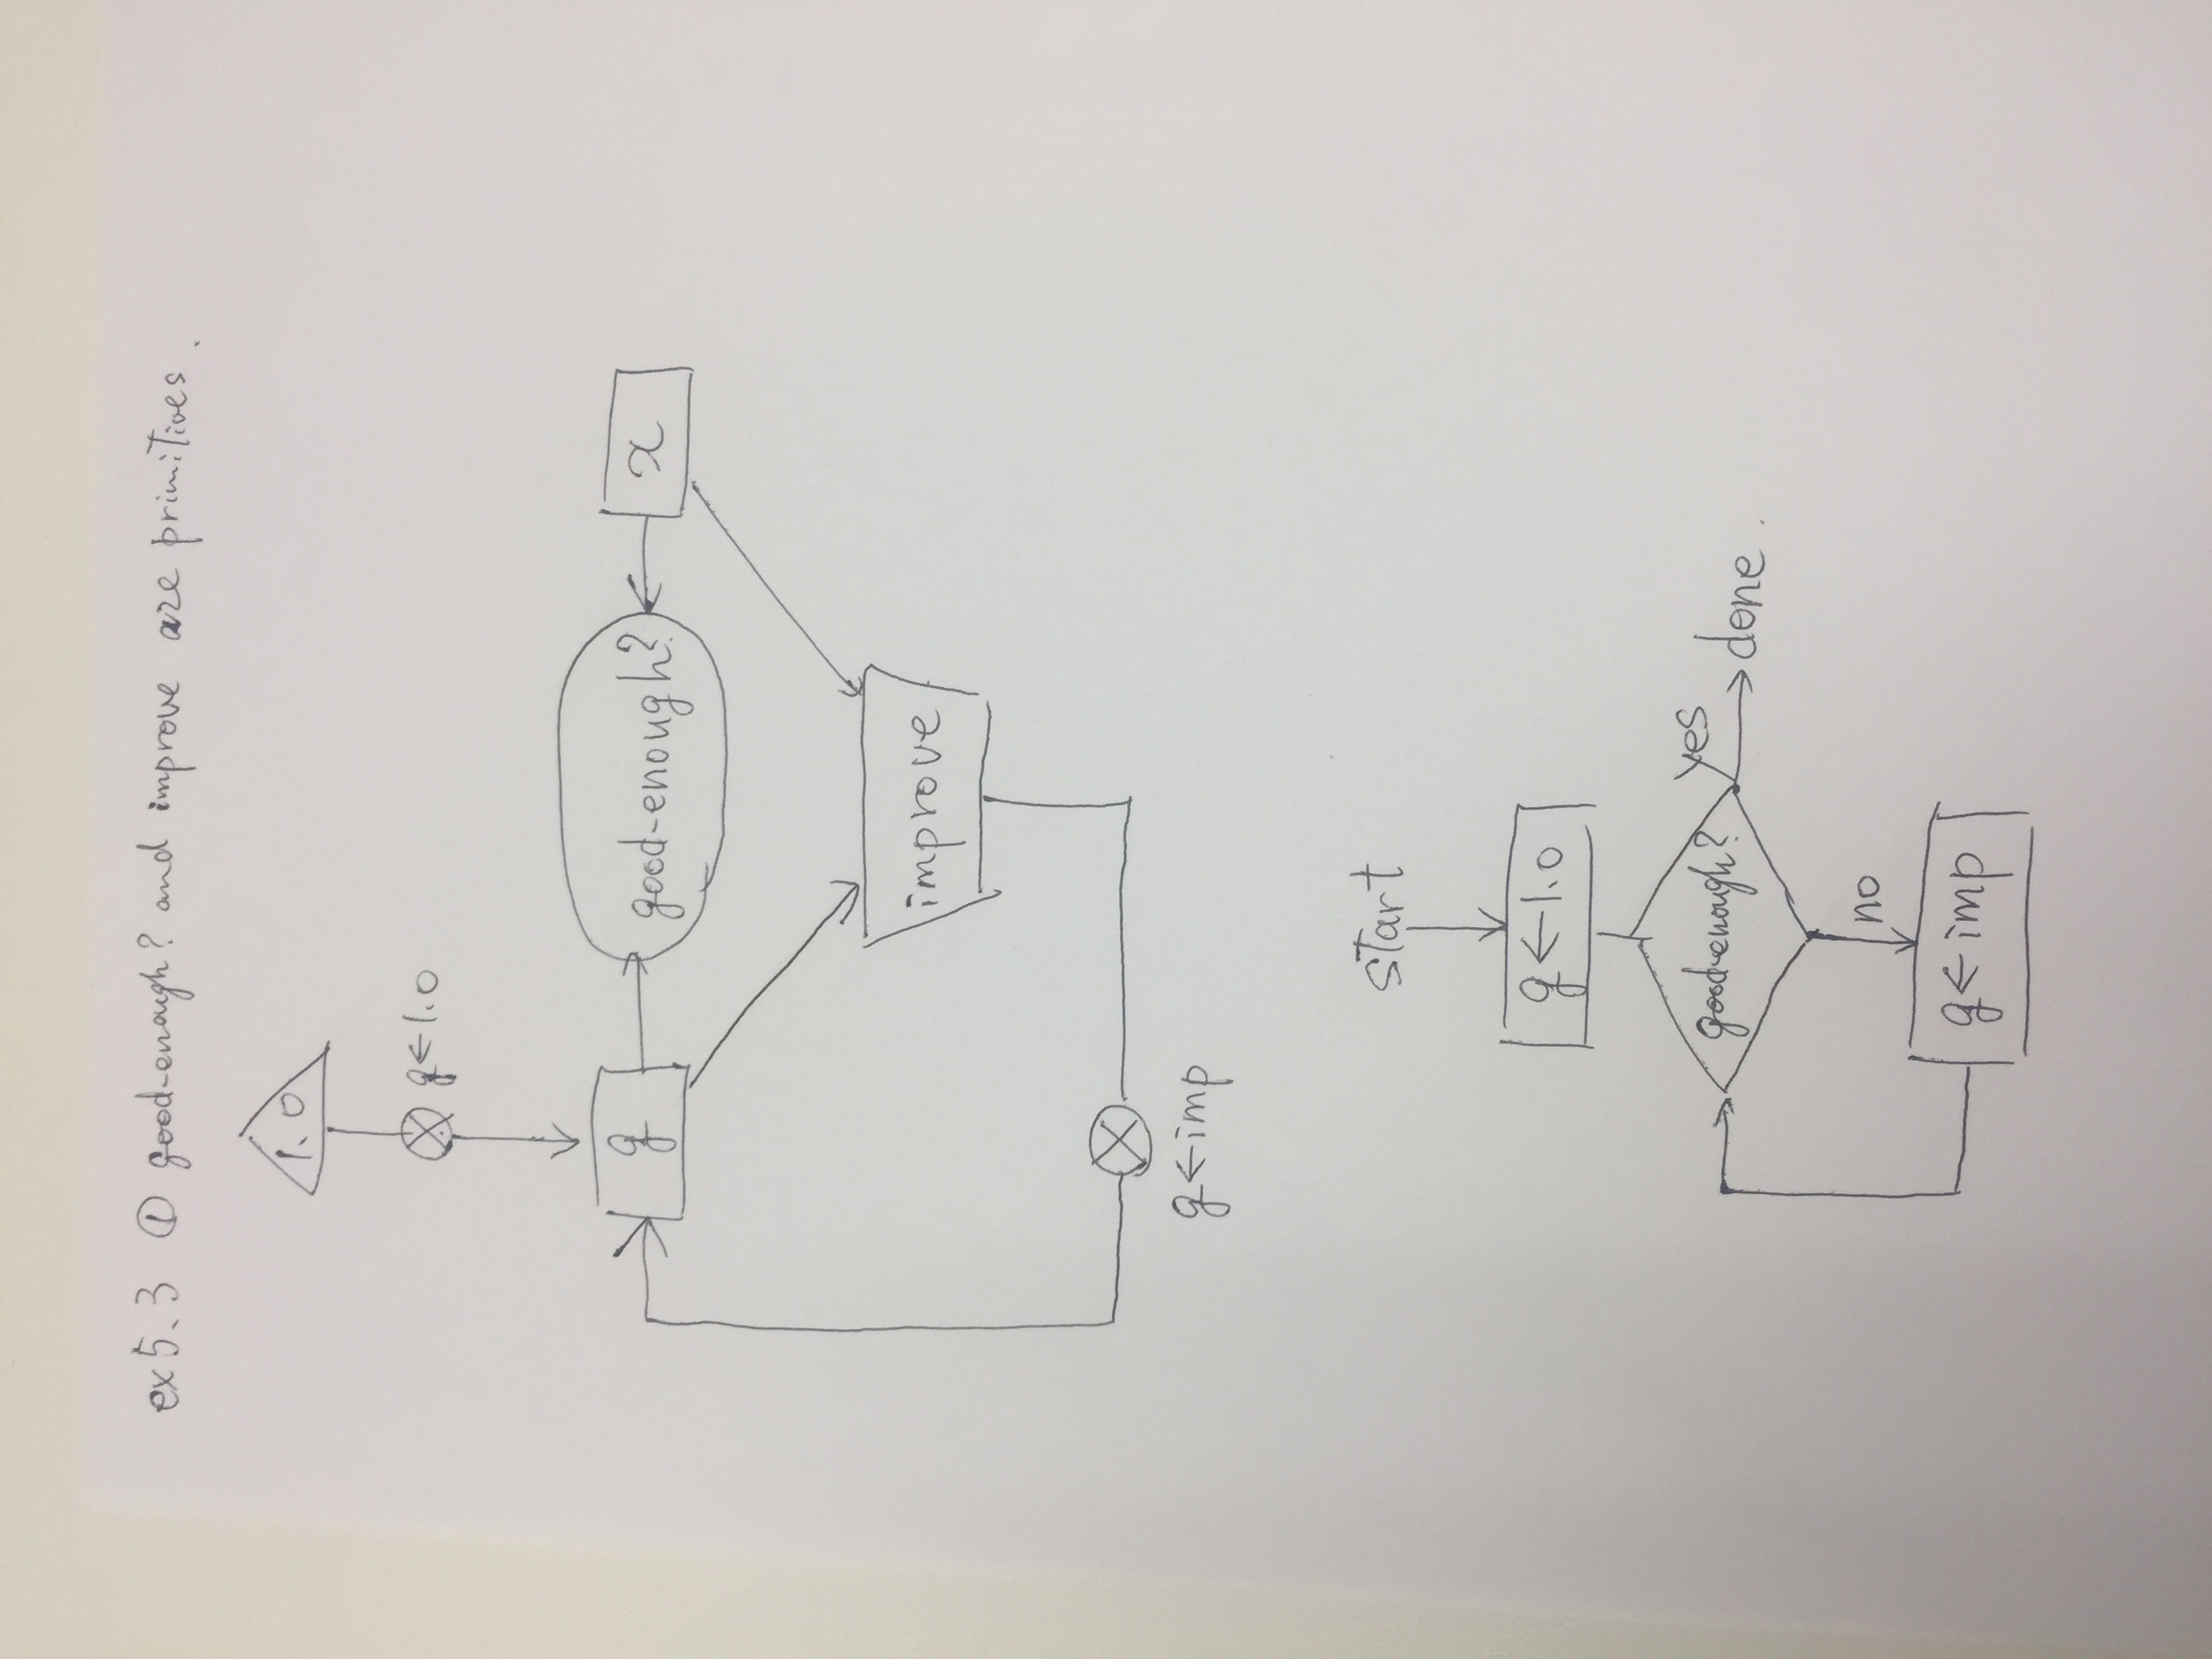 ex 5.3 ① good-enough? and improve are primitives.
1.0
g←1.0
g
good-enough?
x
improve
g←imp
start
g←1.0
good-enough?
yes
done.
no
g←imp